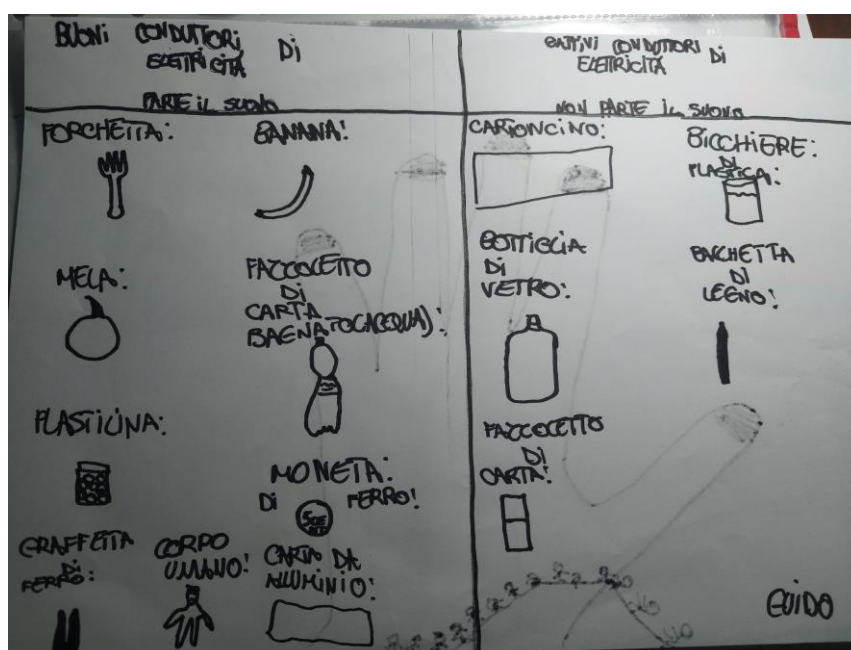 BUONI CONDUTTORI DI
ELETTRICITÀ
PARTE IL SUONO
FORCHETTA:
BANANA:
MELA:
FAZZOLETTO
DI
CARTA
BAGNATO(ACQUA):
PLASTILINA:
MONETA:
DI FERRO:
GRAFFETTA
DI
FERRO:
CORPO
UMANO:
CARTA DA
ALLUMINIO:
CATTIVI CONDUTTORI DI
ELETTRICITÀ
NON PARTE IL SUONO
CARTONCINO:
BICCHIERE:
DI
PLASTICA:
BOTTIGLIA
DI
VETRO:
BACHETTA
DI
LEGNO:
FAZZOLETTO
DI
CARTA:
GUIDO